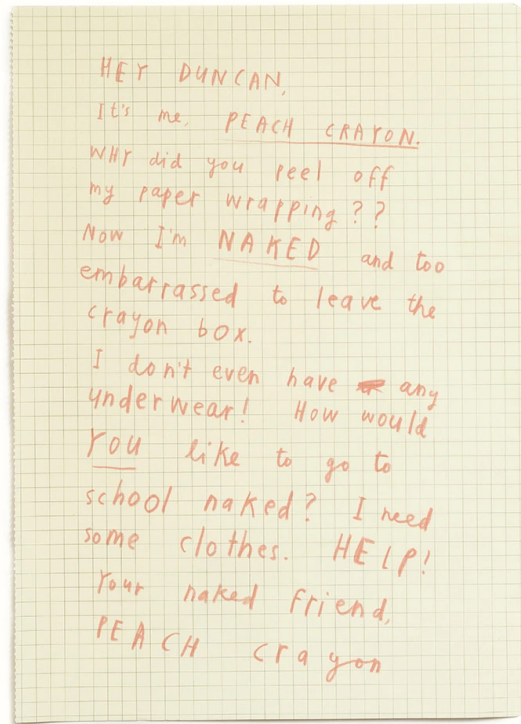 HEY DUNCAN,
It's me, PEACH CRAYON.
WHY did you peel off
my paper wrapping??
Now I'm NAKED and too
embarrassed to leave the
crayon box.
I don't even have any
underwear! How would
YOU like to go to
school naked? I need
some clothes. HELP!
Your naked friend,
PEACH crayon